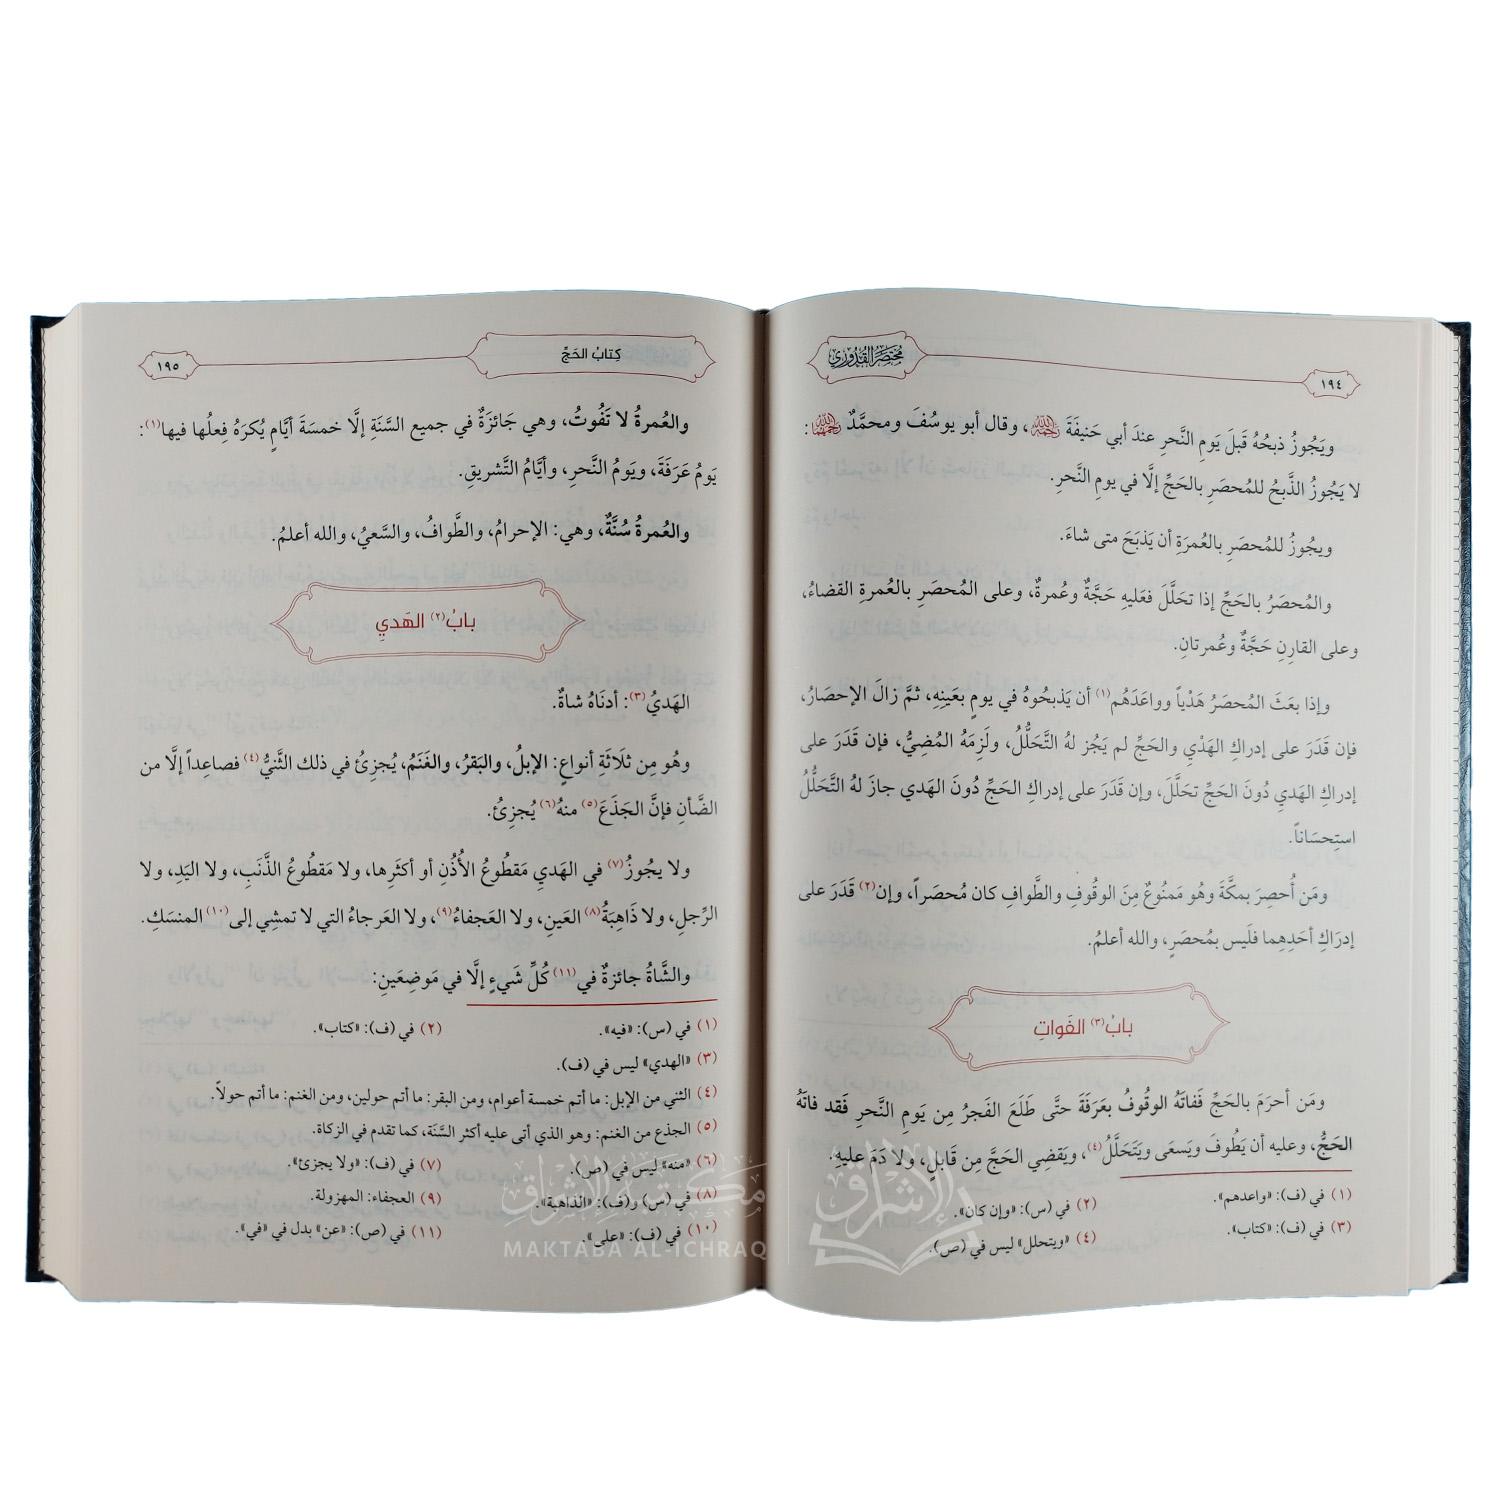 ١٩٤
مُختصَرُ القُدُوري
ويَجُوزُ ذبحُهُ قَبلَ يَومِ النَّحرِ عندَ أبي حَنيفَةَ رحمه الله، وقال أبو يوسُفَ ومحمَّدٌ رحمهما الله:
لا يَجُوزُ الذَّبحُ للمُحصَرِ بالحَجِّ إلَّا في يومِ النَّحرِ.
ويجُوزُ للمُحصَرِ بالعُمرَةِ أن يَذبَحَ متى شاءَ.
والمُحصَرُ بالحَجِّ إذا تحَلَّلَ فعَليهِ حَجَّةٌ وعُمرةٌ، وعلى المُحصَرِ بالعُمرةِ القضاءُ،
وعلى القارِنِ حَجَّةٌ وعُمرتانِ.
وإذا بعَثَ المُحصَرُ هَدْياً وواعَدَهُم(١) أن يَذبحُوهُ في يومٍ بعَينِهِ، ثمَّ زالَ الإحصَارُ،
فإن قَدَرَ على إدراكِ الهَدْيِ والحَجِّ لم يَجُز لهُ التَّحَلُّلُ، ولَزِمَهُ المُضِيُّ، فإن قَدَرَ على
إدراكِ الهَديِ دُونَ الحَجِّ تحَلَّلَ، وإن قَدَرَ على إدراكِ الحَجِّ دُونَ الهَديِ جازَ لهُ التَّحَلُّلُ
استِحسَاناً.
ومَن أُحصِرَ بمكَّةَ وهُو مَمنُوعٌ مِنَ الوقُوفِ والطَّوافِ كان مُحصَراً، وإن(٢) قَدَرَ على
إدرَاكِ أحَدِهِما فلَيس بمُحصَرٍ، والله أعلمُ.
بابُ(٣) الفَواتِ
ومَن أحرَمَ بالحَجِّ فَفاتَهُ الوقُوفُ بعَرَفَةَ حتَّى طَلَعَ الفَجرُ مِن يَومِ النَّحرِ فَقد فاتَهُ
الحَجُّ، وعليه أن يَطُوفَ ويَسعَى ويَتَحَلَّلُ(٤)، ويَقضِي الحَجَّ مِن قَابلٍ، ولا دَمَ عليهِ.
(١) في (ف): «واعدهم».
(٢) في (س): «وإن كان».
(٣) في (ف): «كتاب».
(٤) «ويتحلل» ليس في (ص).
كِتابُ الحَجِّ
١٩٥
والعُمرةُ لا تَفُوتُ، وهي جَائزةٌ في جميع السَّنَةِ إلَّا خمسَةَ أيَّامٍ يُكرَهُ فِعلُها فيها(١):
يَومُ عَرَفَةَ، ويَومُ النَّحرِ، وأيَّامُ التَّشريقِ.
والعُمرةُ سُنَّةٌ، وهي: الإحرامُ، والطَّوافُ، والسَّعيُ، والله أعلمُ.
بابُ(٢) الهَديِ
الهَديُ(٣): أدنَاهُ شاةٌ.
وهُو مِن ثلَاثَةِ أنواعٍ: الإبلُ، والبَقرُ، والغَنَمُ، يُجزِئُ في ذلك الثَّنيُّ(٤) فصاعِداً إلَّا من
الضَّأنِ فإنَّ الجَذَعَ(٥) منهُ(٦) يُجزِئُ.
ولا يجُوزُ(٧) في الهَديِ مَقطُوعُ الأُذُنِ أو أكثَرِها، ولا مَقطُوعُ الذَّنَبِ، ولا اليَدِ، ولا
الرِّجلِ، ولا ذَاهِبَةُ(٨) العَينِ، ولا العَجفاءُ(٩)، ولا العَرجاءُ التي لا تمشِي إلى(١٠) المنسَكِ.
والشَّاةُ جائزةٌ في(١١) كُلِّ شَيءٍ إلَّا في مَوضِعَينِ:
(١) في (س): «فيه».
(٢) في (ف): «كتاب».
(٣) «الهدي» ليس في (ف).
(٤) الثني من الإبل: ما أتم خمسة أعوام، ومن البقر: ما أتم حولين، ومن الغنم: ما أتم حولاً.
(٥) الجذع من الغنم: وهو الذي أتى عليه أكثر السَّنَة، كما تقدم في الزكاة.
(٦) «منه» ليس في (ص).
(٧) في (ف): «ولا يجزئ».
(٨) في (س) و(ف): «الذاهبة».
(٩) العجفاء: المهزولة.
(١٠) في (ف): «على».
(١١) في (ص): «عن» بدل في «في».
مكتبة الإشراق
MAKTABA AL-ICHRAQ
الإشراق